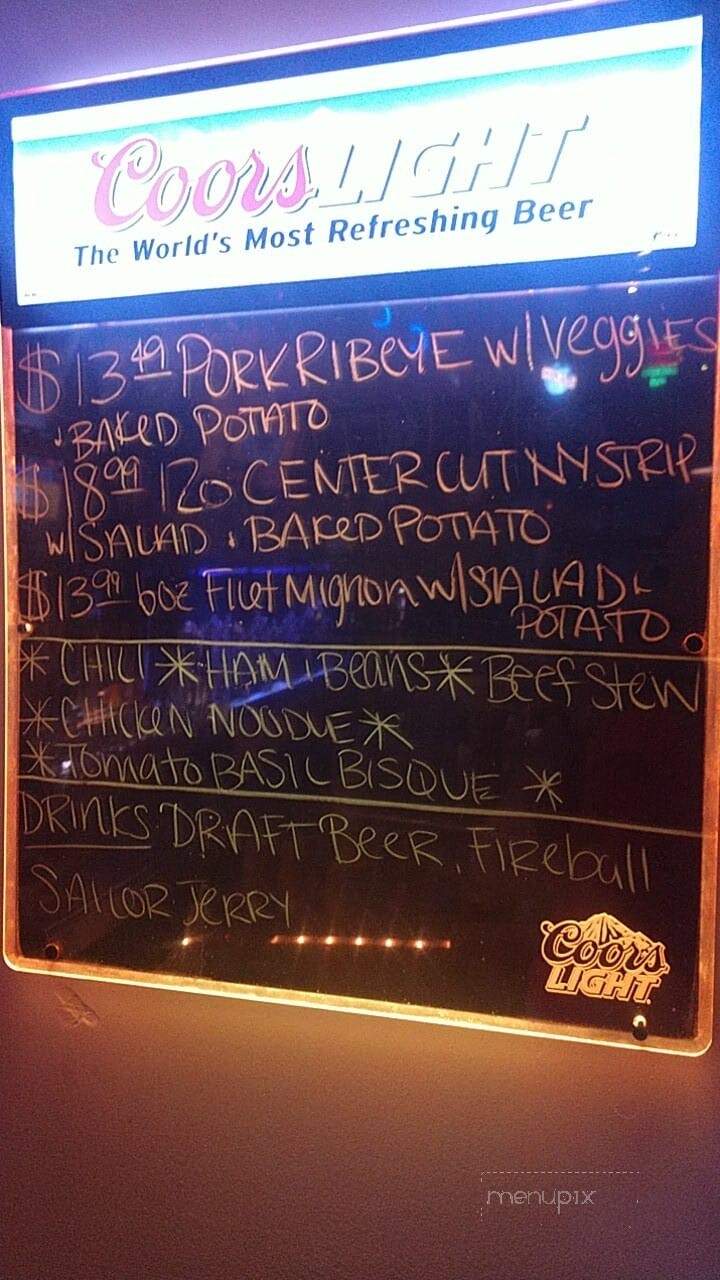 Coors LIGHT
The World's Most Refreshing Beer
$13.49 PORK RIBEYE W/ Veggies
& BAKED POTATO
$18.99 12o CENTER CUT NY STRIP
W/ SALAD & BAKED POTATO
$13.99 6oz Filet Mignon W/ SALAD &
POTATO
* CHILI * HAM & Beans * Beef Stew
* CHICKEN NOODLE *
* Tomato BASIL BISQUE *
DRINKS: DRAFT BEER, FIReball
SAILOR JERRY
Coors
LIGHT
menupix